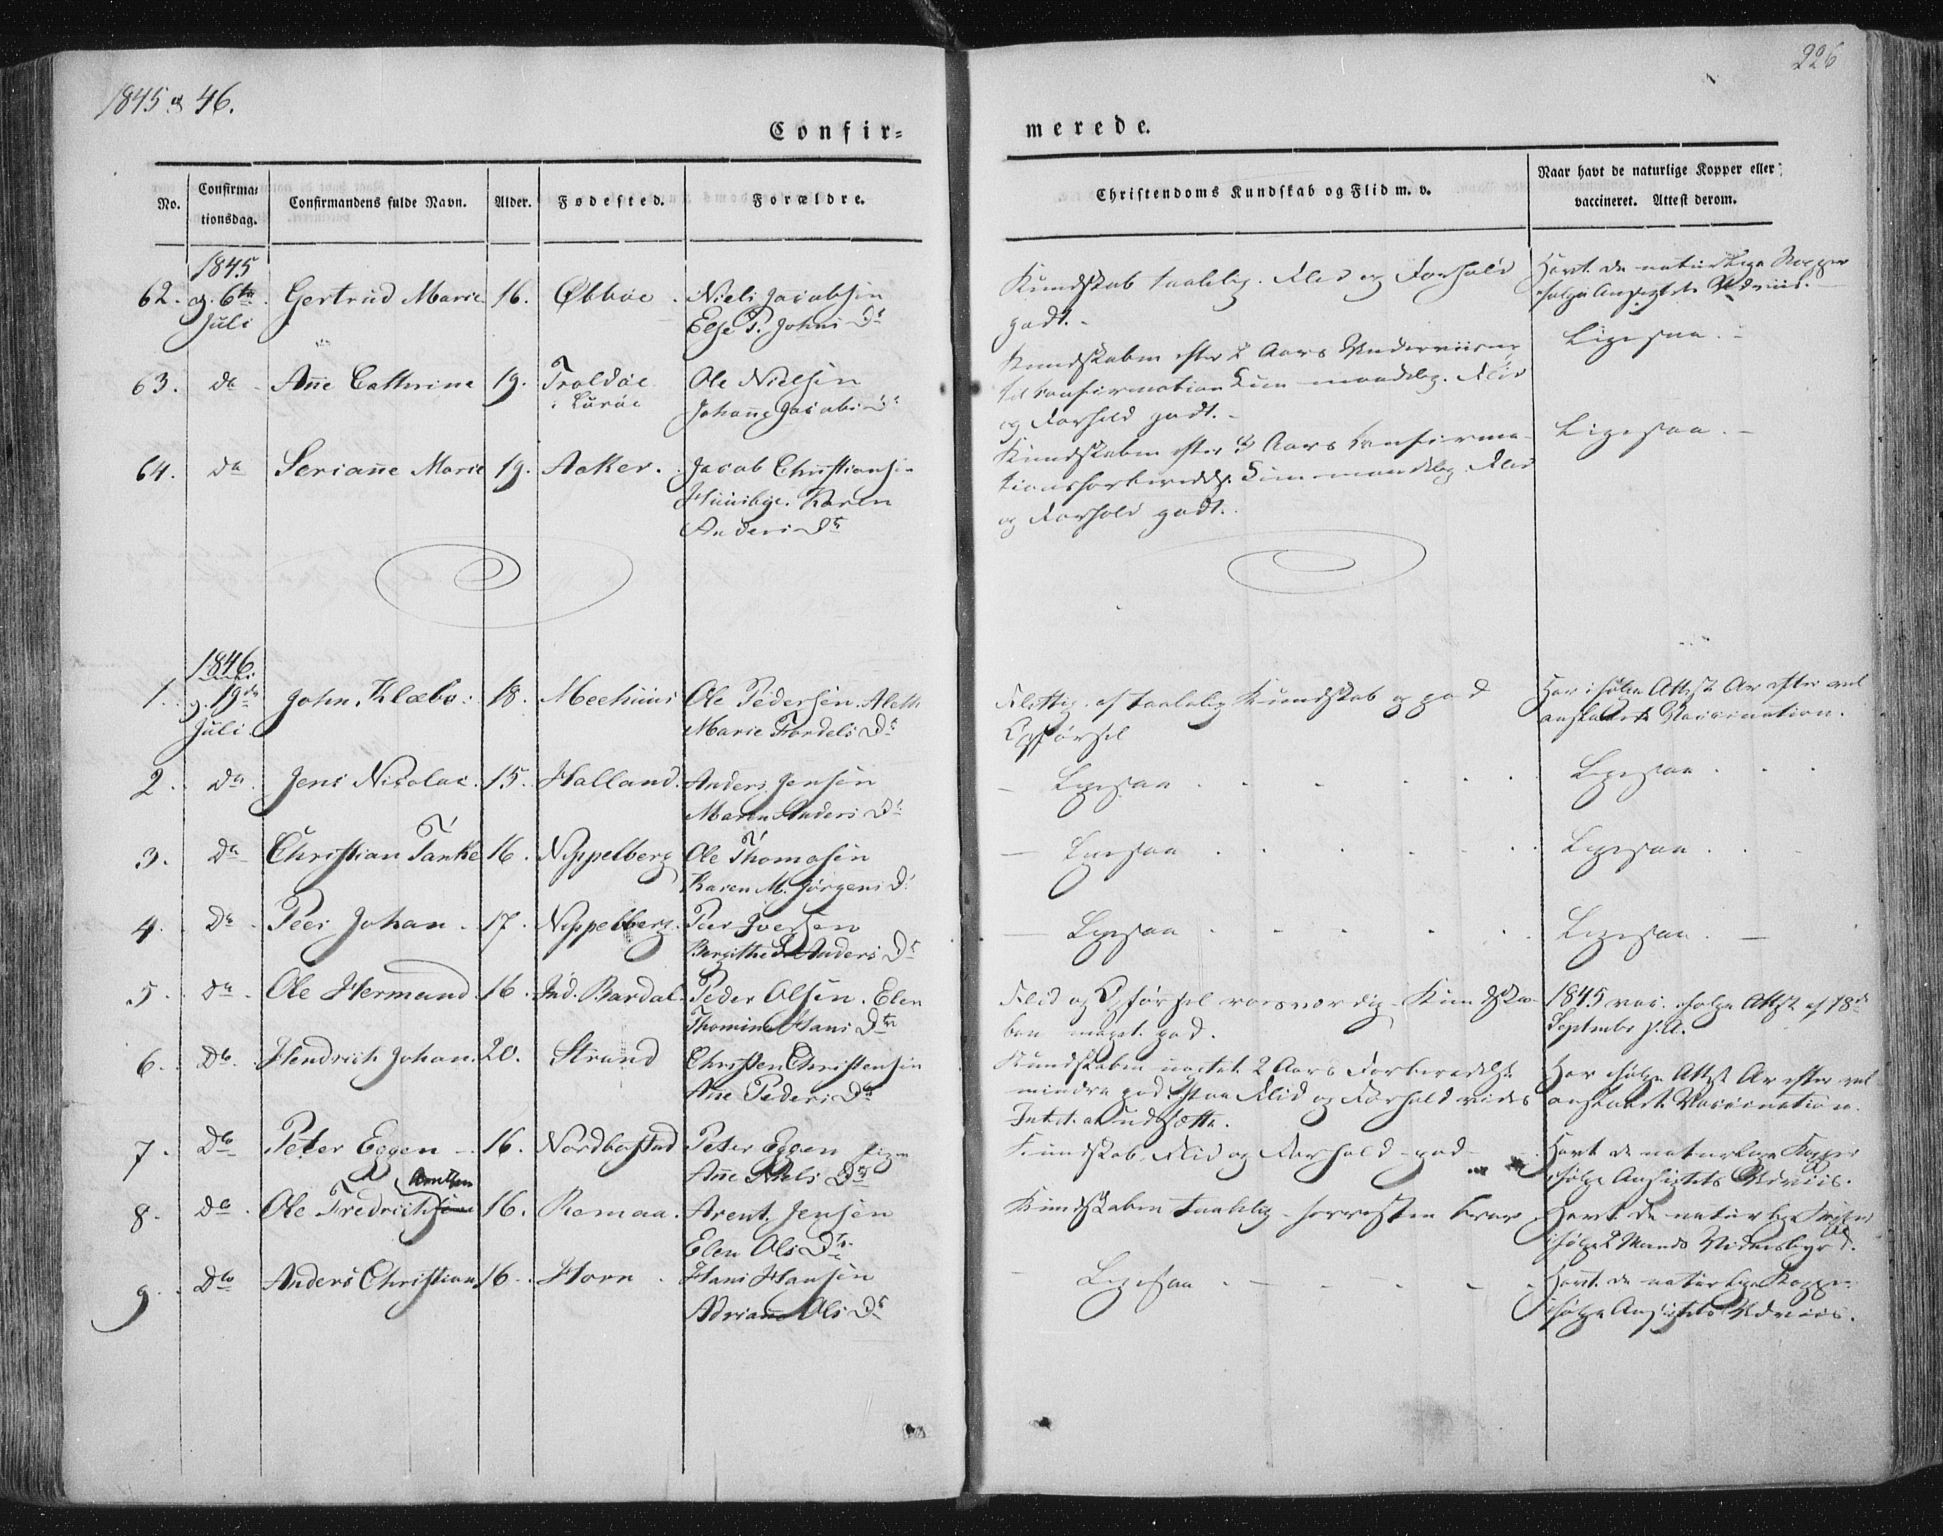 1845 & 46.
226
Confir=
merede.
No.
Confirma:
tionsdag.
Confirmandens fulde Navn.
Alder.
Fødested.
Forældre.
Christendoms Kundskab og Flid m. v.
Naar havt de naturlige Kopper eller
vaccineret. Attest derom.
1845
62. 6te Gertrud Marie 16. Øbbøe. Niels Jacobsen
Juli Else P. Johns Dr
Kundskab taalelig. Flid og Forhold
godt.
Havt de naturlige Kopper
ifølge Ansigtets Udviis.
63. do Añe Cathrine 19. Troldøe Ole Nielsen
i Lurøe Johañe Jacobs Dr
Kundskaben efter 2 Aars Underviisning
til Confirmation kun maadelig. Flid
og Forhold godt.
Ligesaa.
64. do Seriañe Marie 19. Aaker. Jacob Christiansen
Huusbye. Karen
Anders Dr
Kundskaben efter 3 Aars Confirma-
tionsforberedelse kun maadelig. Flid
og Forhold godt.
Ligesaa.
1846.
1. 19de John Klæbo. 18. Meehuus Ole Pedersen. Aleth
Juli. Marie Tordels Dr
Flittig, af taalelig Kundskab og god
Opførsel
Har ifølge Attest Ar efter vel
anstaaet Vaccination.
2. do Jens Nicolai. 15. Halland. Anders Jensen
Maren Anders Dr
Ligesaa
Ligesaa
3. do Christian Tanke 16. Nippelberg Ole Thomasen
Karen M. Jørgens Dr
Ligesaa
Ligesaa
4. do Peer Johan. 17. Nippelberg. Peer Iversen
Bergithe Anders Dr
Ligesaa
Ligesaa.
5. do Ole Hermand 16. Ind. Bardal. Peder Olsen. Elen
Thomine Hans Dtr
Flid og Opførsel roesværdig. Kundska-
ben meget god.
1845 vac. ifølge Attest af 18de
September s. A.
6. do Hendrich Johan. 20. Strand Christen Christensen
Añe Peders Dr
Kundskaben uagtet 2 Aars Forberedelse
mindre god. Paa Flid og Forhold vides
Intet at udsætte.
Har ifølge Attest Ar efter vel
anstaaet Vaccination.
7. do Peter Eggen 16. Nordbostad Peter Eggen
Añe Niels Dr
Kundskab, Flid og Forhold god
Havt de naturlige Kopper
ifølge Ansigtets Udviis.
Arntsen
8. do Ole Fredrich 16. Remaa. Arent Jensen
Elen Ols Dtr
Kundskaben taalelig forresten brav
Havt de naturlige Kopper
ifølge 2 Mænds Vidnesbyrd.
9. do Anders Christian 16. Horn. Hans Hansen
Adriane Ols Dr
Ligesaa
Havt de naturlige Kopper
ifølge Ansigtets Udviis.